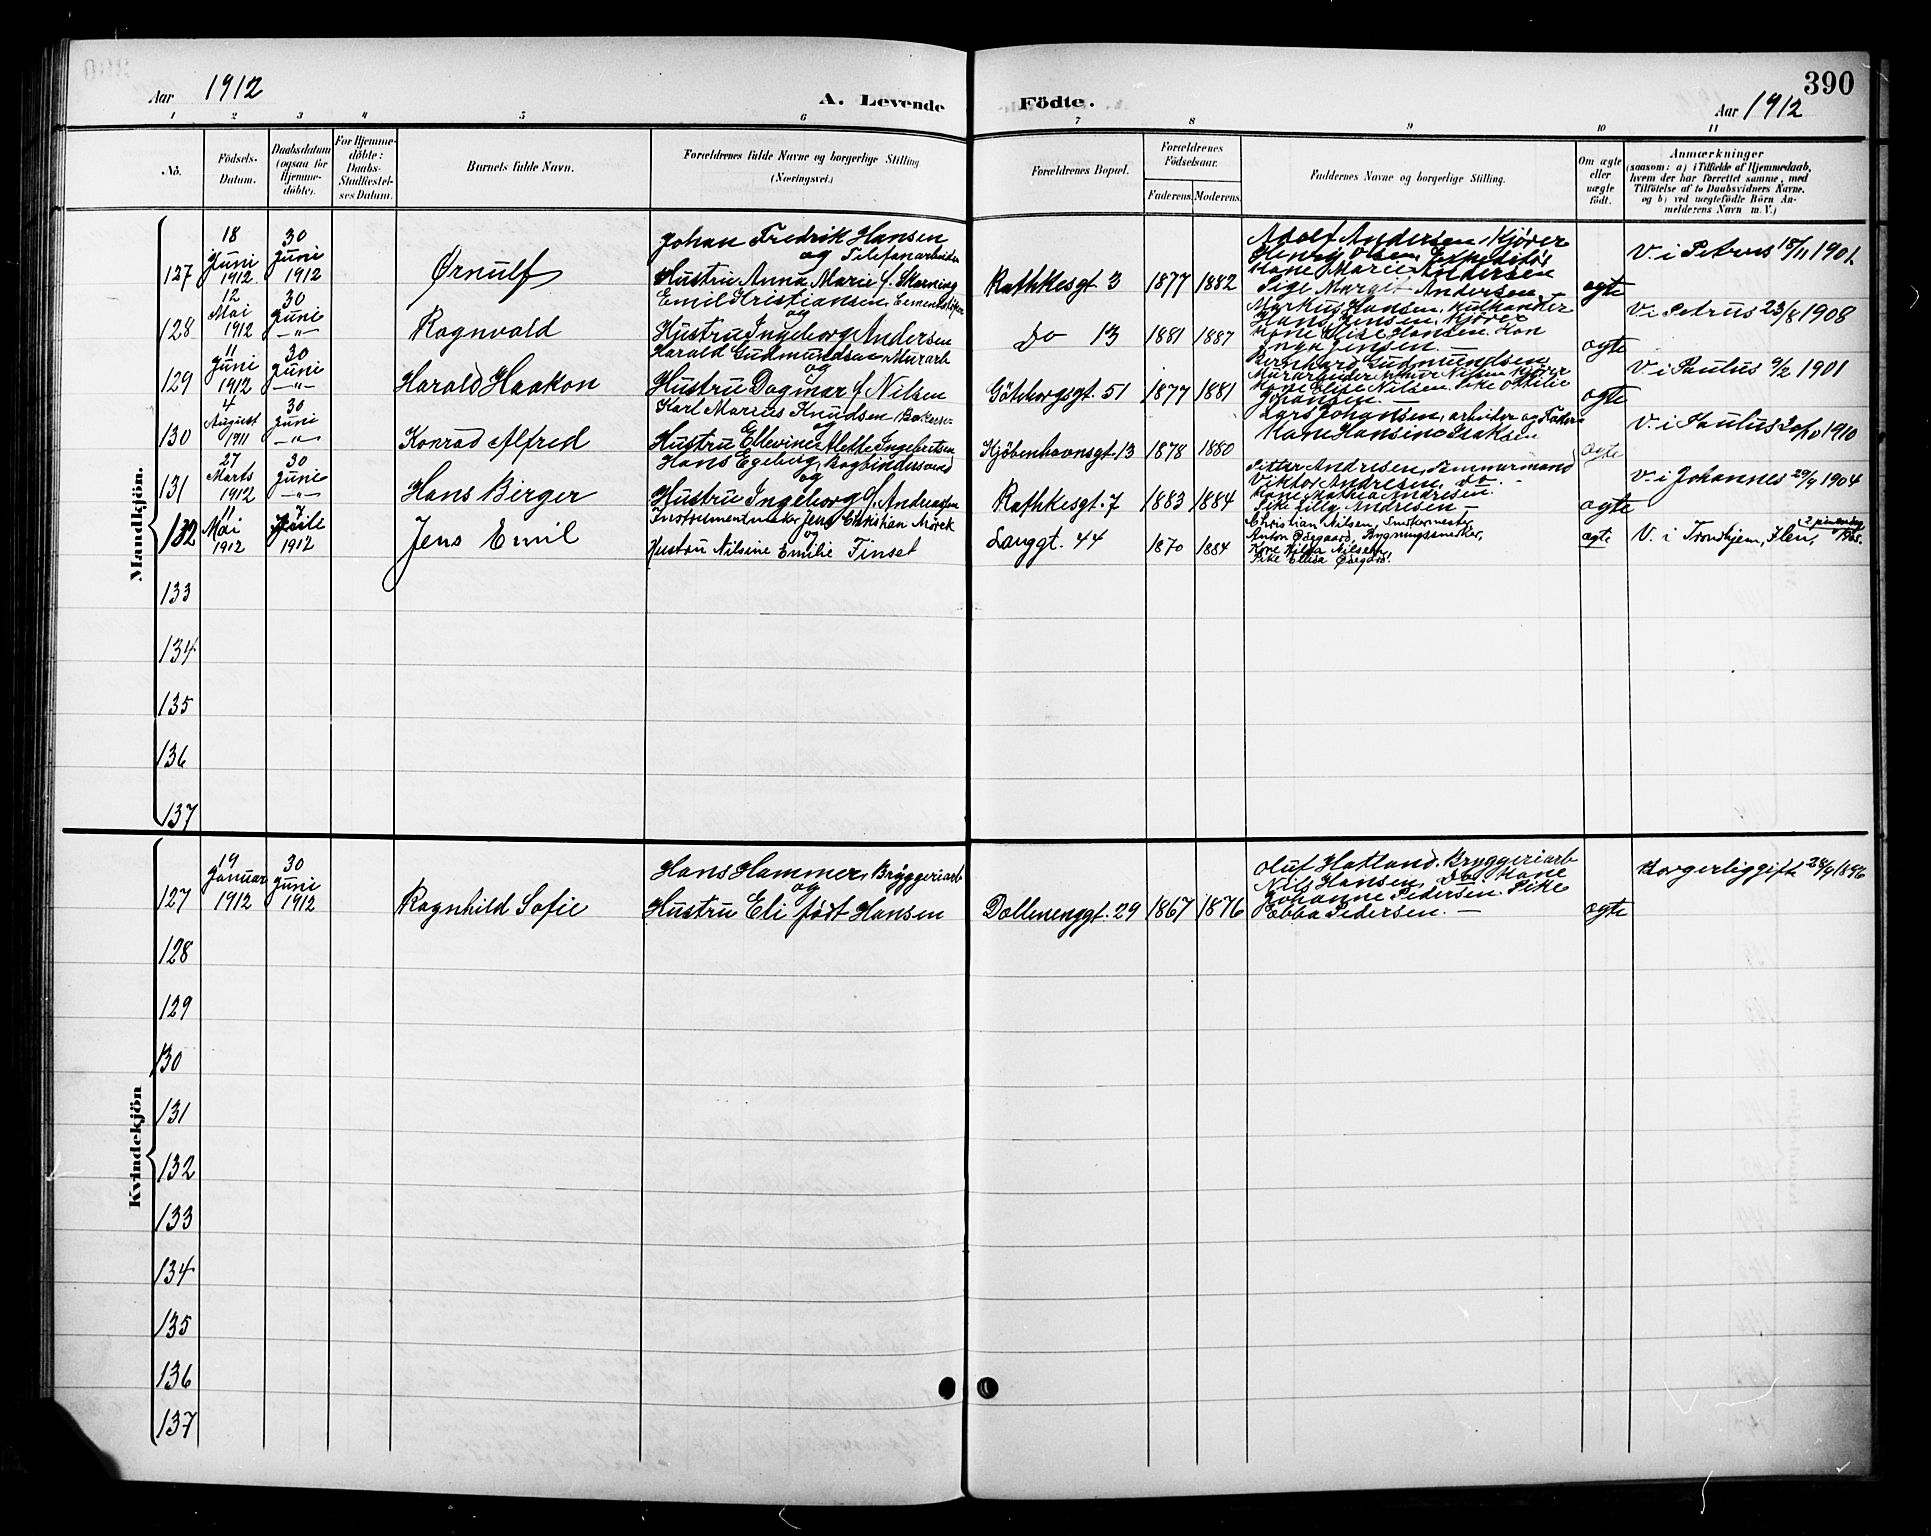 Aar 1912
A. Levende
Födte.
390
Aar 1912
1 2 3 4 5 6 7 8 9 10 11
No.
Födsels-
Datum.
Daabsdatum
(ogsaa for
Hjemme-
döbte).
For Hjemme-
döbte:
Daabs-
Stadfæstel-
ses Datum.
Barnets fulde Navn.
Forældrenes fulde Navne og borgerlige Stilling
(Næringsvei.)
Forældrenes Bopæl.
Forældrenes
Födselsaar.
Faderens. Moderens.
Faddernes Navne og borgerlige Stilling.
Om ægte
eller
uægte
födt.
Anmærkninger
(saasom: a) i Tilfælde af Hjemmedaab,
hvem der har forrettet samme, med
Tilföielse af to Daabsvidners Navne,
og b) ved uægtefödte Börn An-
melderens Navn m. V.)
Mandkjön.
127
18
Juni
1912
30
Juni
1912
Ørnulf
Johan Fredrik Hansen
og Telefonarbeider
Hustru Anna Marie f. Skarning
Rathkesgt 3
1877
1882
Adolf Andersen, Kjører
Henry Olsen, Expeditør
Kone Marie Andersen
Pige Margit Andersen
ægte
V. i Petrus 18/11 1901.
128
12
Mai
1912
30
Juni
—"—
Ragnvald
Emil Kristiansen,
og
Hustru Ingeborg Andersen
Do 13
1881
1887
Markus Hansen,
Hans Jensen, Kjører
Kone Elise Hansen. Kon
Inga Jensen —
ægte
V. i Petrus 23/8 1908
129
11
Juni
1912
30
Juni
—"—
Harald Haakon
Harald Gudmundsen, Murarb
og
Hustru Dagmar f. Nilsen
Göteborgsgt. 51
1877
1881
Bernhard Gudmundsen
Murarbeider, Arthur Nilsen Kjører
Kone Elise Nilsen. Pike Ottilie
Johansen. —
ægte
V. i Paulus 9/2 1901
130
4
August
1911
30
Juni
—"—
Konrad Alfred
Karl Marius Knudsen,
og
Hustru Ellevine Alette Ingebretsen
Kjöbenhavnsgt. 13
1878
1880
Lars Johansen, arbeider og
Kone Hansine Isaksen
ægte
V. i Paulus 30/10 1910
131
27
Marts
1912
30
Juni
—"—
Hans Birger
Hans Egeberg, Bogbindersvend
og
Hustru Ingeborg f. Andreasen
Rathkesgt. 7
1883
1884
Petter Andresen, Tømmermand
Viktor Andresen, do. -
Kone Mathea Andresen.
Pike Lilly Andresen —
ægte
V. i Johannes 29/9 1904
132
11
Mai
1912
7
1912
Jens Emil
Instrumentmaker Jens Christian Mørek
og
Hustru Nilsine Emilie Tinset
Langgt. 44
1870
1884
Christian Nilsen,
Anton Ødegaard, Bygningssnedker,
Kone Hilda Nilsen,
Pike Ellisa Ødegaard.
ægte
V. i Trondhjem, Ilen, 2 pinsedag 1905.
133
134
135
136
137
Kvindekjön
127
19
Januar
1912
30
Juni
1912
Ragnhild Sofie
Hans Hammer, Bryggeriarb
og
Hustru Eli født Hansen
Dælenenggt. 29
1867
1876
Oluf Hatland, Bryggeriarb
Nils Hansen, Do Kone
Johanne Pedersen. Pike
Ebba Pedersen. —
ægte
Borgerliggift 28/9 1896
128
129
130
131
132
133
134
135
136
137